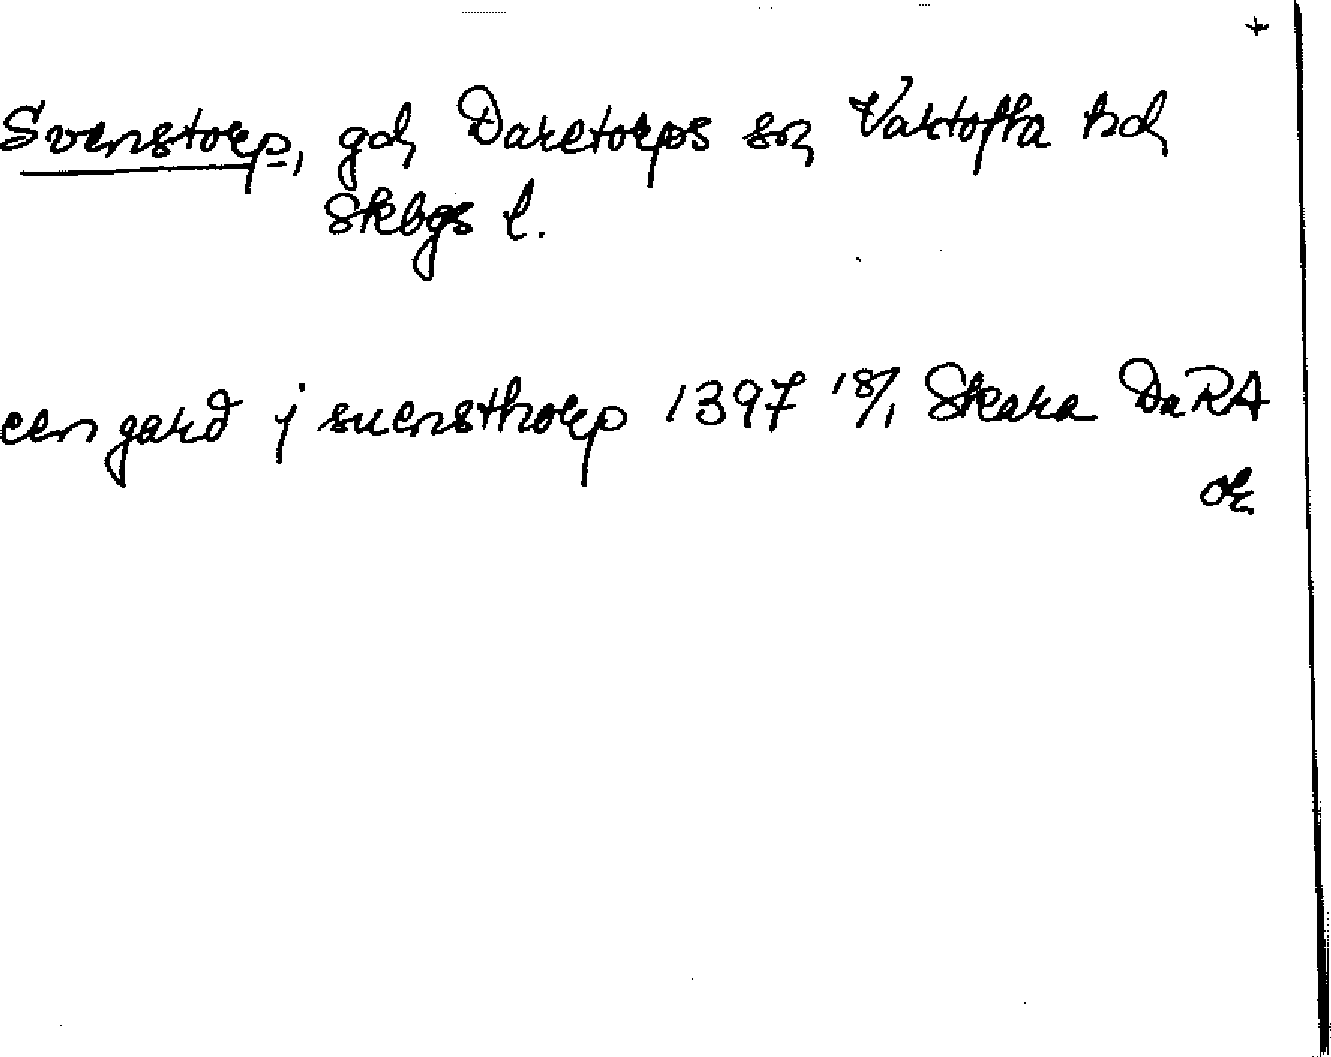 +
Svenstorp, gd, Daretorps sn, Vartofta hd,
Skbgs l.
een gard j suensthorp 1397 18/1 Skara DaRA
or